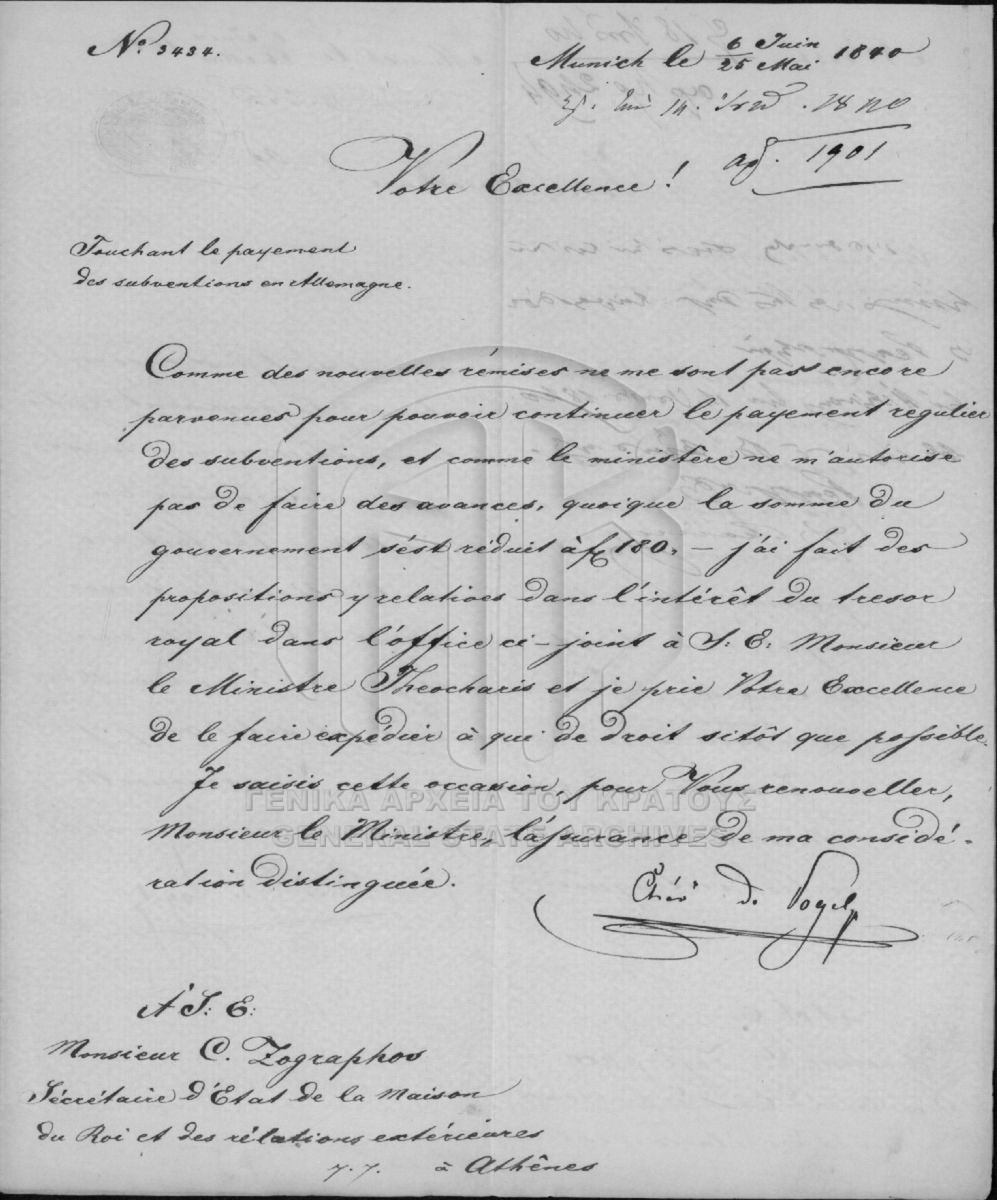 Nº 3434.
Munich le 6 Juin / 25 Mai 1840
1901
Votre Excellence!
Touchant le payement
des subventions en Allemagne.
Comme des nouvelles rémises ne me sont pas encore
parvenues pour pouvoir continuer le payement regulier
des subventions, et comme le ministère ne m'autorise
pas de faire des avances, quoique la somme du
gouvernement s'ést réduit à 180, – j'ai fait des
propositions y relatives dans l'intérêt du tresor
royal dans l'office ci-joint à S: E: Monsieur
le Ministre Theocharis et je prie Votre Excellence
de le faire expédier à qui de droit sitôt que possible.
Je saisis cette occasion, pour Vous renouveller,
ΓΕΝΙΚΑ ΑΡΧΕΙΑ ΤΟΥ ΚΡΑΤΟΥΣ
GENERAL STATE ARCHIVES
Monsieur le Ministre, l'assurance de ma considé-
ration distinguée.
de
A S: E:
Monsieur C. Zographos
Sécrétaire d'Etat de la Maison
du Roi et des rélations extérieures
à Athênes